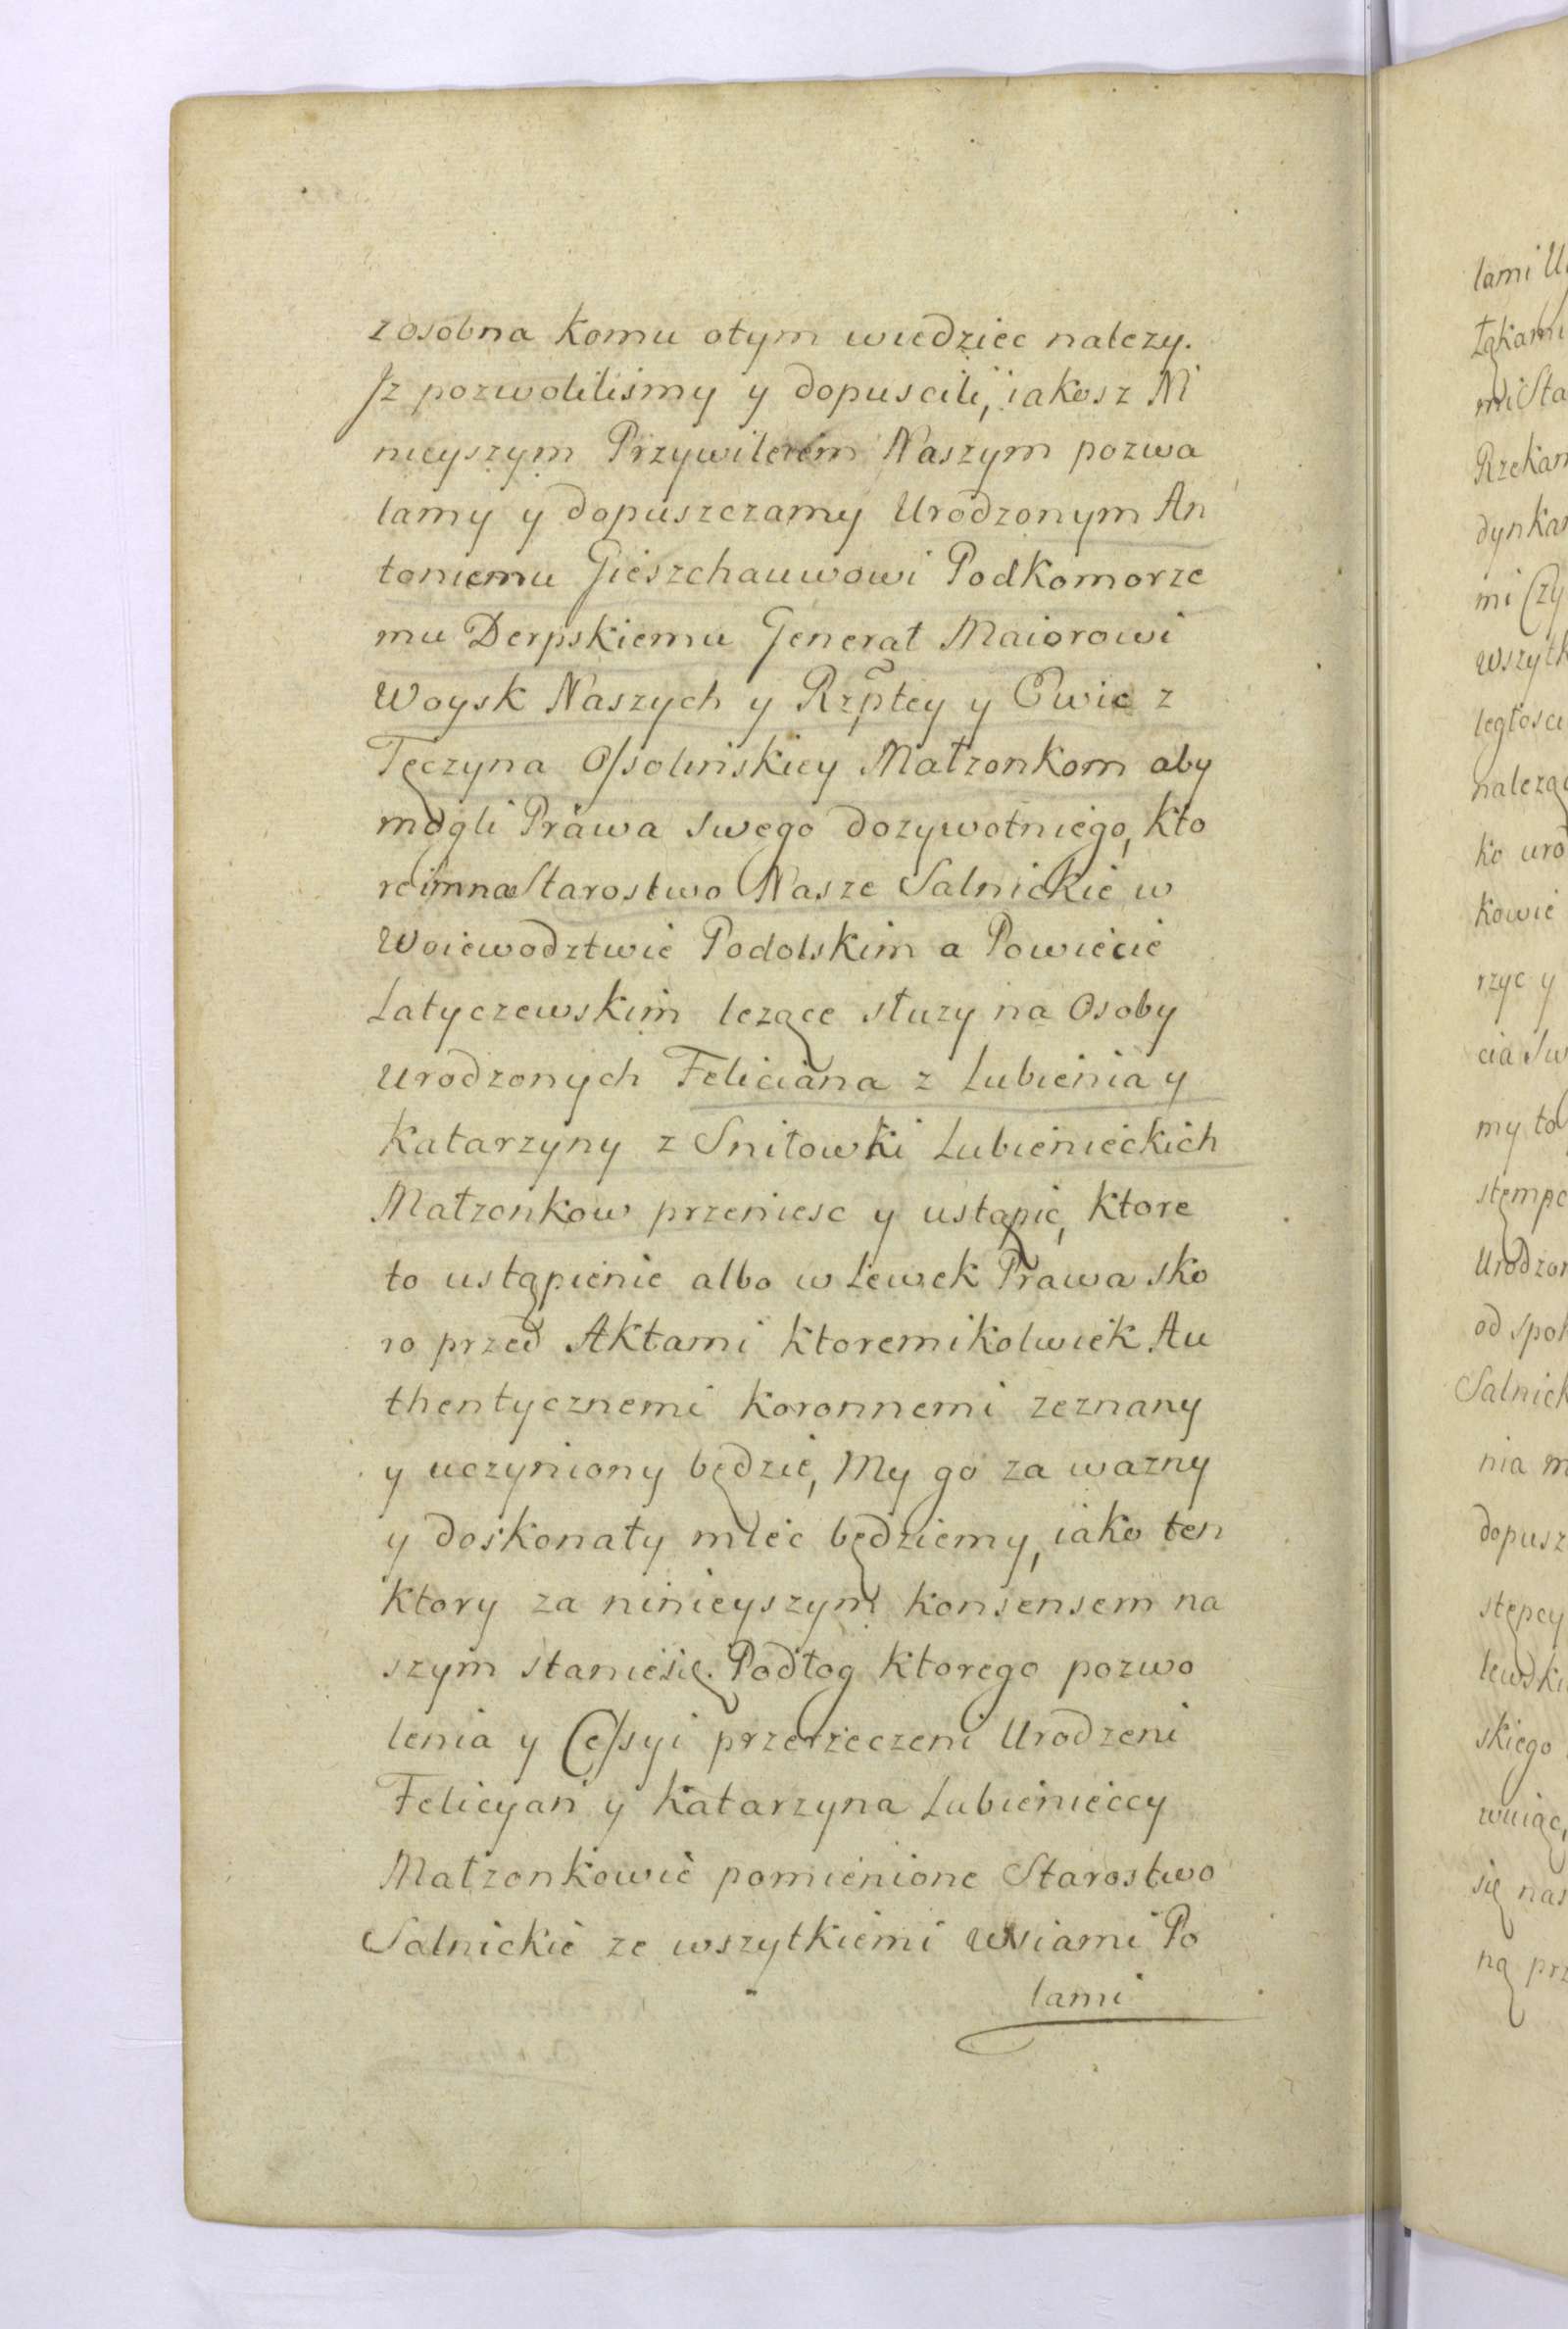 zosobna komu otym wiedziec nalezy.
Jz pozwoliliśmy y dopuscili, iakosz Ni
nieyszym Przywileiem Naszym pozwa
lamy y dopuszczamy Urodzonym An
toniemu Gieszchauwowi Podkomorze
mu Derpskiemu Generał Maiorowi
Woysk Naszych y Rzptey y Ewie z
Tęczyna Ossolinskiey Małzonkom aby
mogli Prawa swego dozywotniego, kto
re imna Starostwo Nasze Salnickie w
Woiewodztwie Podolskim a Powiecie
Latyczewskim lezące słuzy na Osoby
Urodzonych Feliciana z Lubienia y
Katarzyny z Snitowki Lubienieckich
Małzonkow przeniesc y ustąpić, ktore
to ustąpienie albo wlewek Prawa sko
ro przed Aktami ktoremikolwiek Au
thentycznemi koronnemi zeznany
y uczyniony będzie, My go za wazny
y doskonały miec będziemy, iako ten
ktory za ninieyszym konsensem na
szym stanie się. Podłog ktorego pozwo
lenia y Cessyi przerzeczeni Urodzeni
Felicyan y Katarzyna Lubienieccy
Małzonkowie pomienione Starostwo
Salnickie ze wszytkiemi Wsiami Po
lami
lami
łąkami
mi Sta
Rzekam
dynkam
mi Czy
wszytk
ległosci
nalezą
ko uro
kowie
rzyc y
cia Sw
my to
stempc
Urodzon
od spok
Salnick
nia m
dopusz
stępcy
skiego
się nas
ną prz